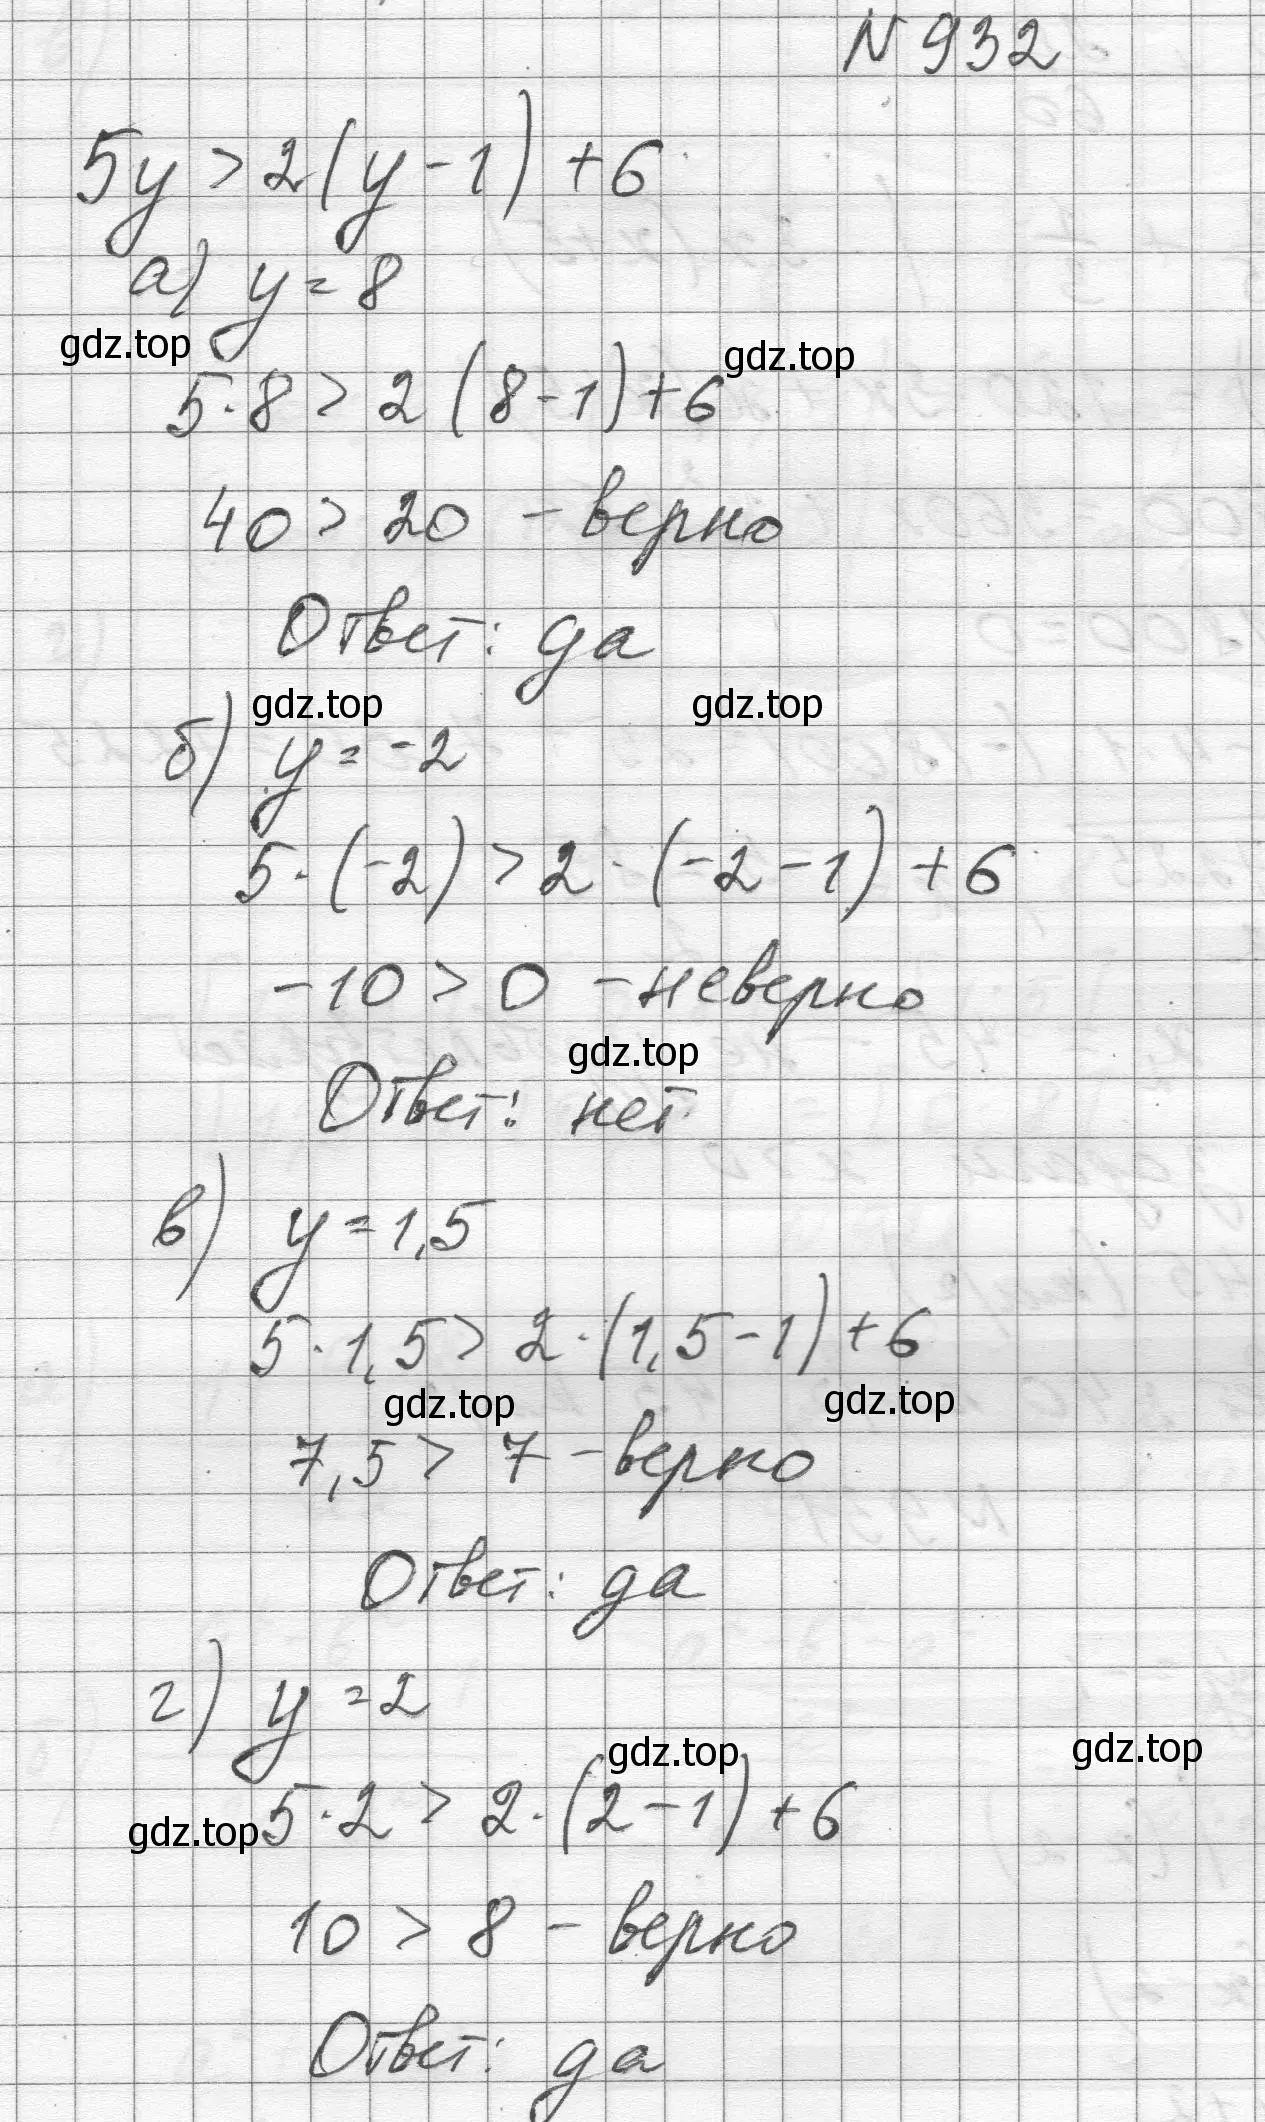 N 932
5y > 2(y - 1) + 6
а) y = 8
gdz.top
gdz.top
5·8 > 2(8 - 1) + 6
40 > 20 - верно
Ответ: да
gdz.top gdz.top
б) y = -2
5·(-2) > 2·(-2 - 1) + 6
-10 > 0 - неверно
gdz.top
Ответ: нет
в) y = 1,5
5·1,5 > 2·(1,5 - 1) + 6
gdz.top gdz.top
7,5 > 7 - верно
Ответ: да
г) y = 2
gdz.top gdz.top
5·2 > 2·(2 - 1) + 6
gdz.top
10 > 8 - верно
Ответ: да